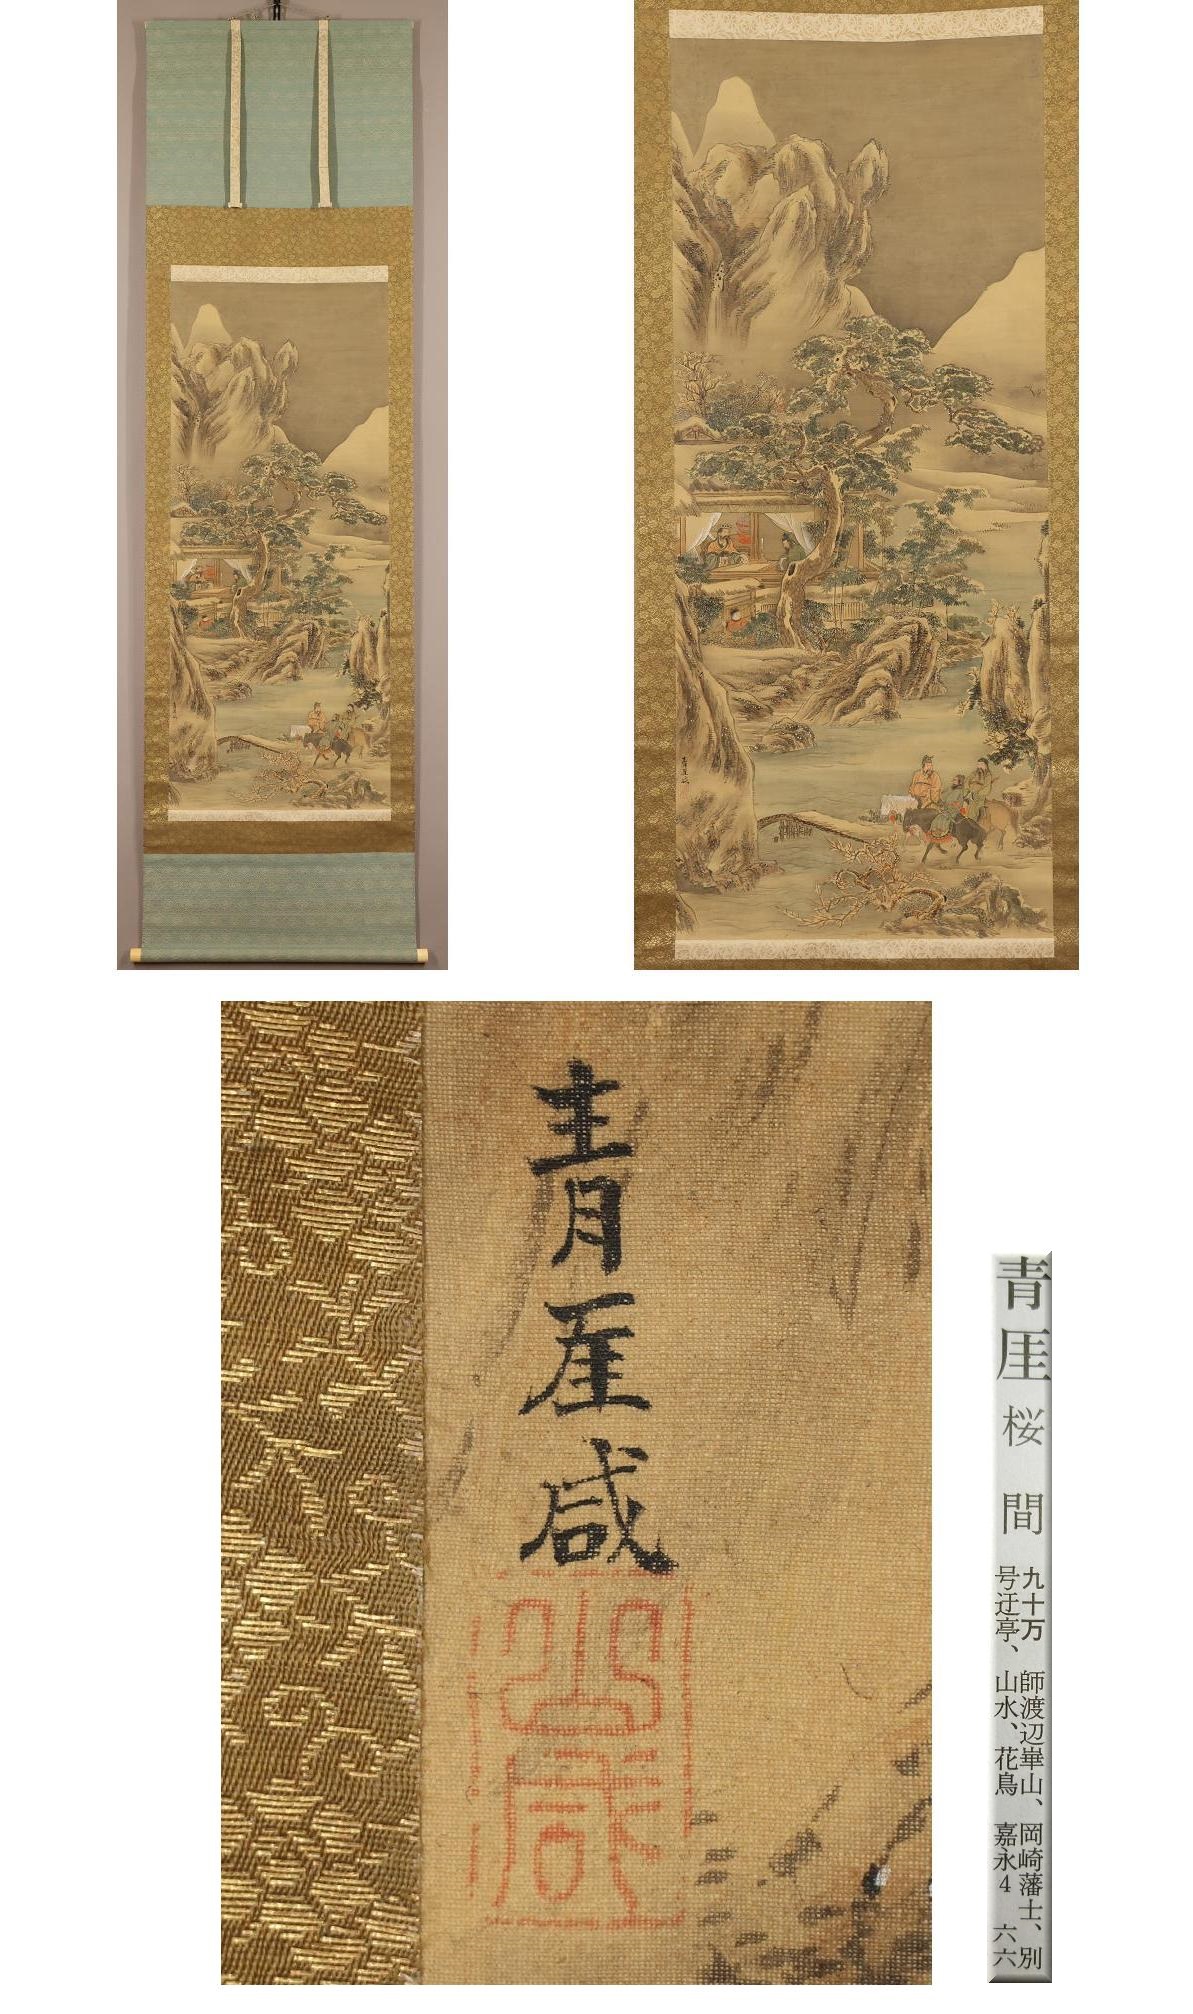 青厓咸
青厓 桜間
九十万 師渡辺崋山、岡崎藩士、別
号迂亭、山水、花鳥 嘉永4 六六